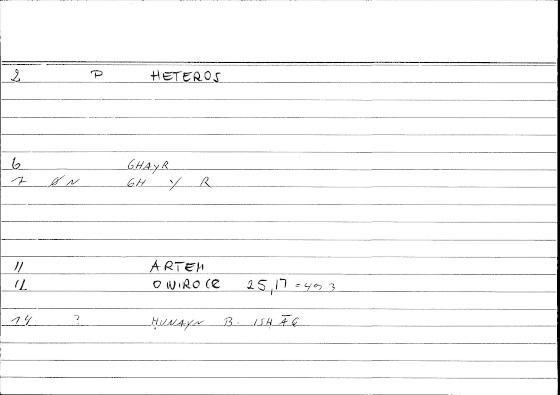 2 P HETEROS
6 GHAYR
7 ØN GH Y R
11 ARTEM
12 ONIROCR 25,17 =
14 ? ḤUNAYN B. ISḤĀ